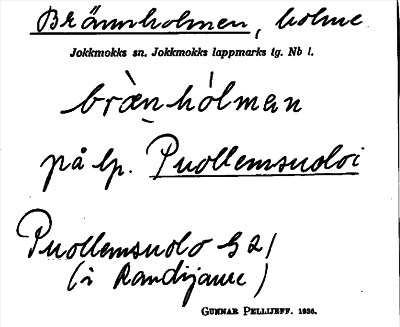 Brännholmen, holme
Jokkmokks sn. Jokkmokks lappmarks tg. Nb l.
brànhólman
på lp. Puollemsuoloi
Puollemsuolo G 21
(i Randijaure)
GUNNAR PELLIJEFF. 1936.